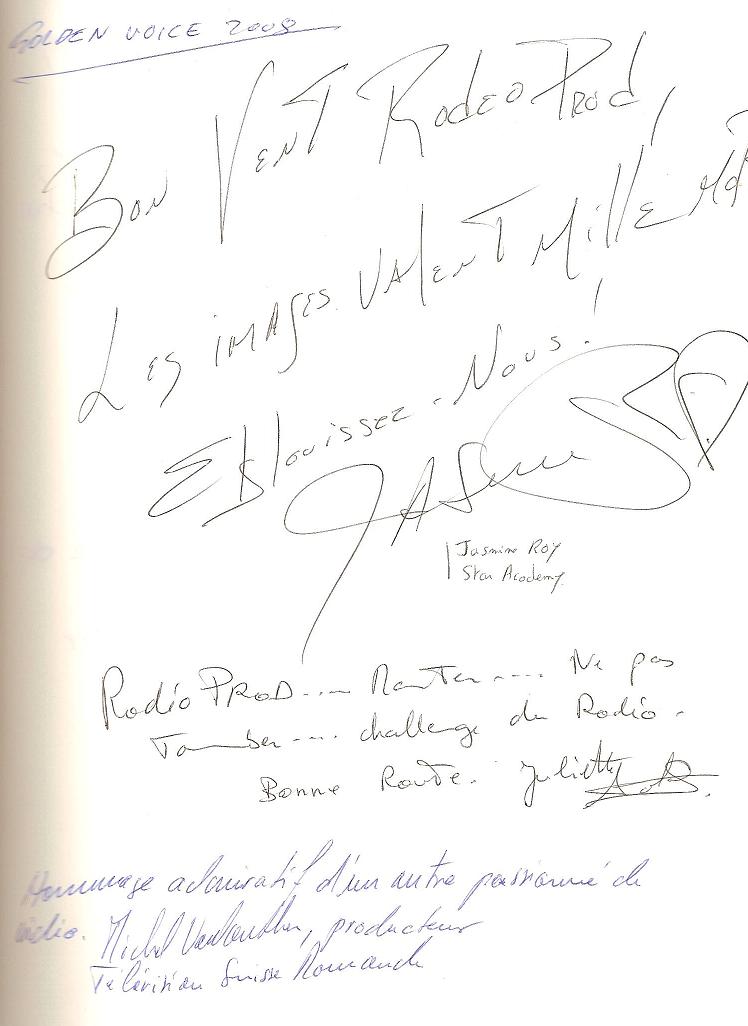 GOLDEN VOICE 2008
BON VENT RODEO PROD,
LES IMAGES VALENT MILLE MOT
EBlouissez-Nous!
JASMINE
Jasmine Roy
Star Academy
Rodéo PROD.... Monter..... Ne pas
Tomber.... challenge du Rodéo.
Bonne Route. Juliette
Hommage admiratif d'un autre passionné de
vidéo. Michel producteur
Télévision Suisse Romande